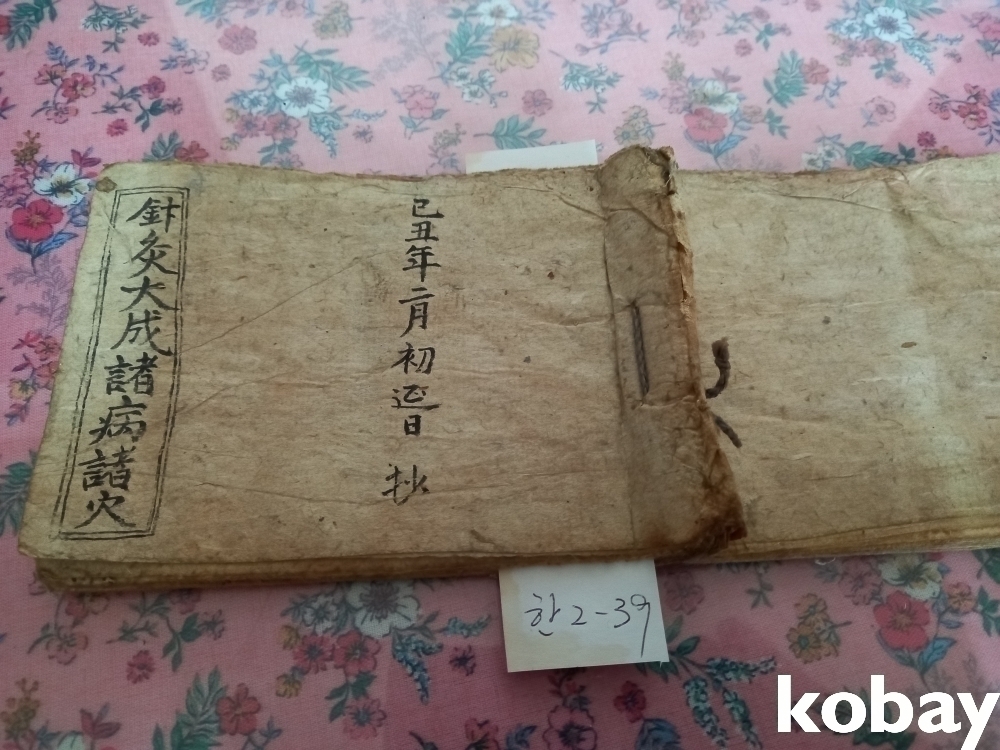 己丑年二月初 日 抄
針灸大成諸病諸穴
한2-39
kobay